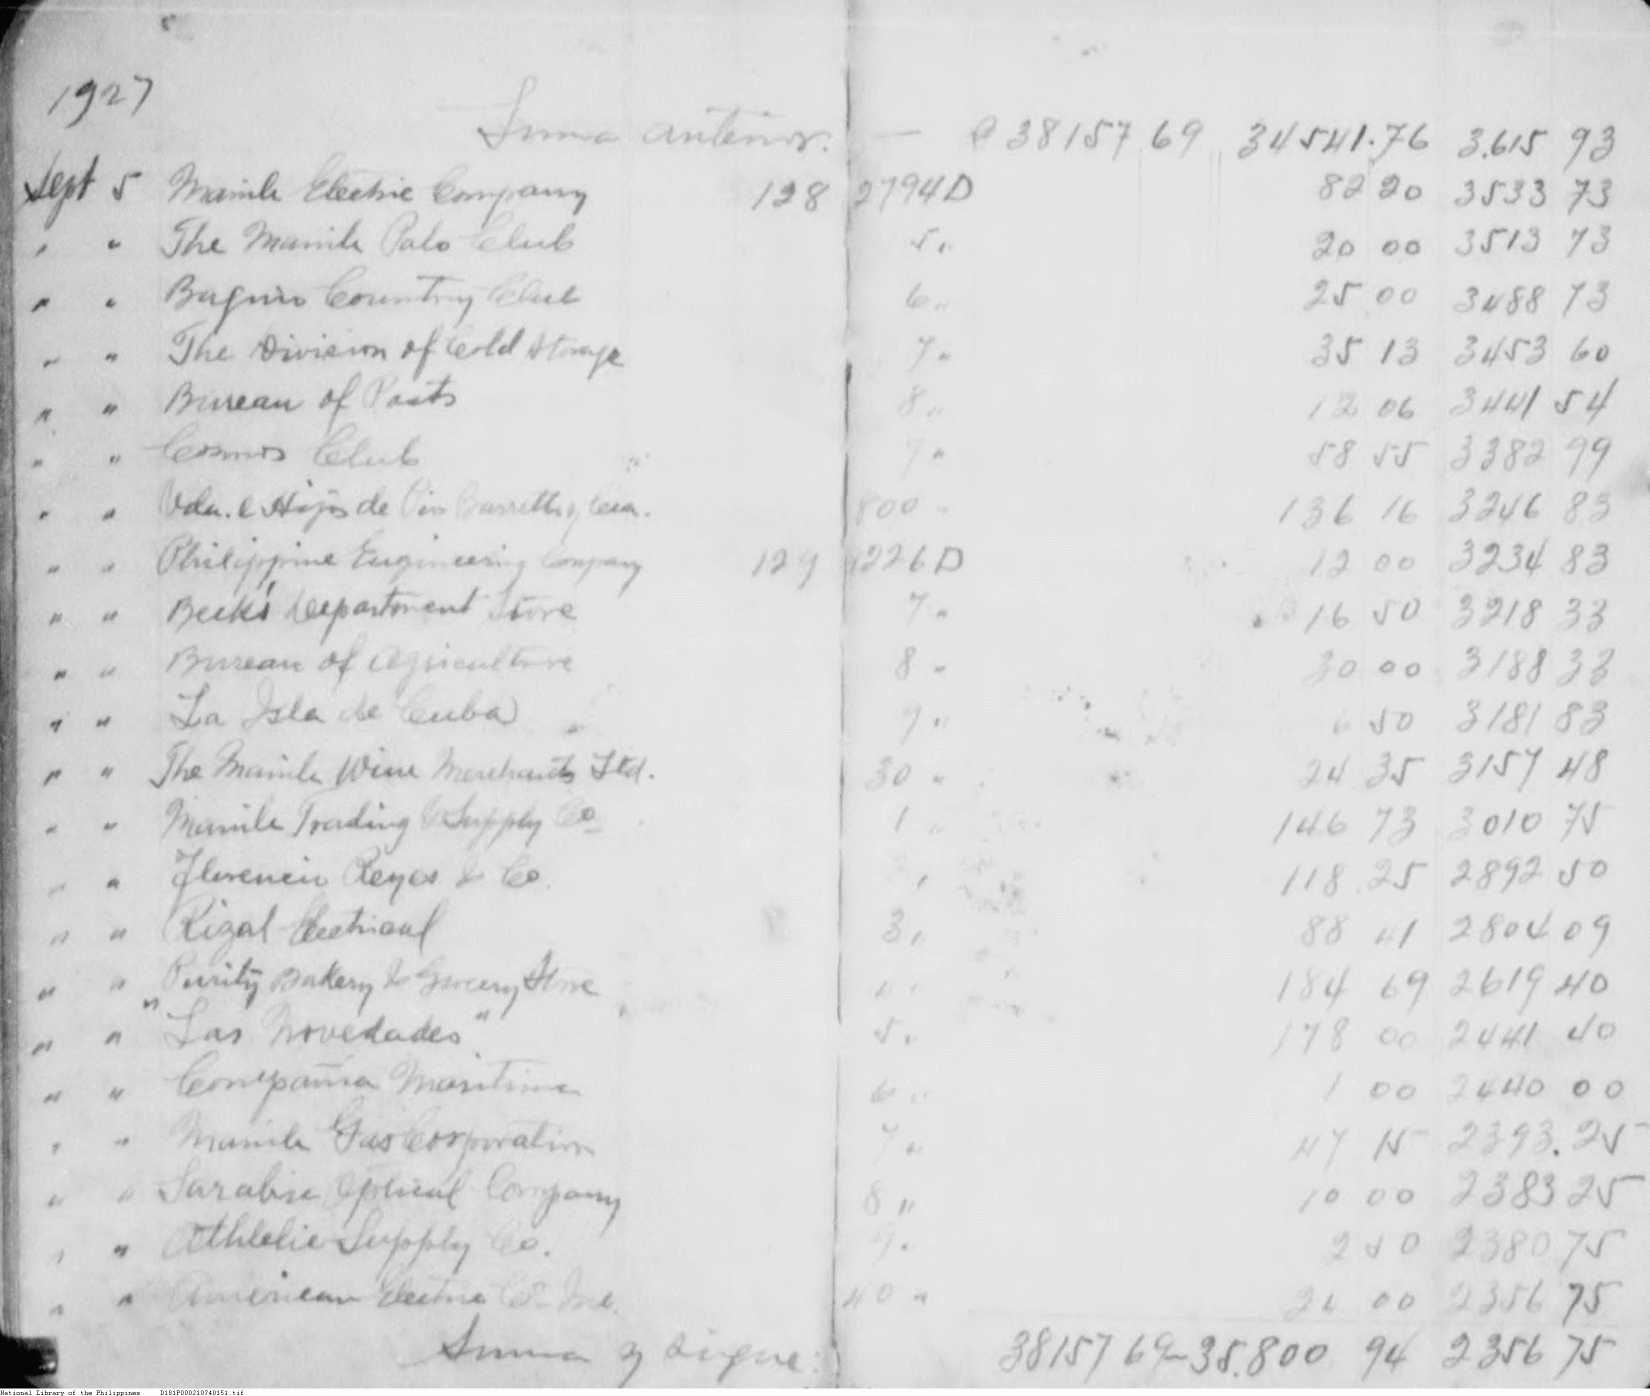 1927
Suma anterior. — P 38157 69 34541.76 3.615 93
Sept 5 Manila Electric Company 128 2794D 82 20 3533 73
" " The Manila Polo Club 5" 20 00 3513 73
" " Baguio Country Club 6" 25 00 3488 73
" " The Division of Cold Storage 7" 35 13 3453 60
" " Bureau of Posts 8" 12 06 3441 54
" " Cosmos Club 9" 58 55 3382 99
" " Vda. e Hijos de Pio Barretto y Cia. 800 " 136 16 3246 83
" " Philippine Engineering Company 129 226D 12 00 3234 83
" " Beck's Department Store 7" 16 50 3218 33
" " Bureau of Agriculture 8" 30 00 3188 33
" " La Isla de Cuba 9" 6 50 3181 83
" " The Manila Wine Merchants Ltd. 30 " 24 35 3157 48
" " Manila Trading & Supply Co 1 " 146 73 3010 75
" " Florencio Reyes & Co. " 118 25 2892 50
" " Rizal Electrical 3" 88 41 2804 09
" " Purity Bakery & Grocery Store " 184 69 2619 40
" " "Las Novedades" 5" 178 00 2441 40
" " Compañia Maritima 6" 1 00 2440 00
" " Manila Gas Corporation 7" 47 15 2393.25
" " Optical Company 8" 10 00 2383 25
" " Athletic Supply Co. 9" 2 50 2380 75
" " American Electric Co. Inc. 40 " 00 2356 75
Suma y sigue: 38157 69 - 35.800 94 2356 75
National Library of the Philippines D181P000210740151.tif